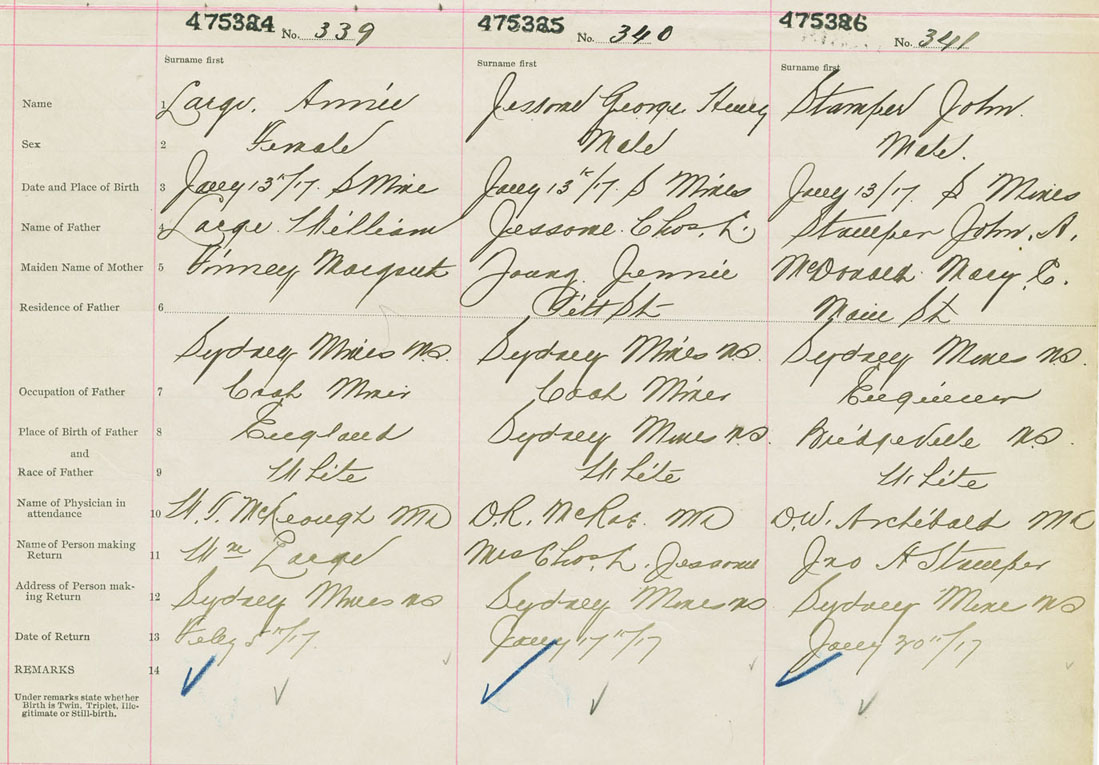 475324 No. 339 475325 No. 340 475326 No. 341
Surname first Surname first Surname first
Name 1 Large, Annie Jessome George Henry Stamper John.
Sex 2 Female Male Male.
Date and Place of Birth 3 Jany 13th/17. S Mine Jany 13th/17. S Mines Jany 13/17. S Mines
Name of Father 4 Large William Jessome Chas. L. Stamper John. A.
Maiden Name of Mother 5 Finney Margaret Young Jennie McDonald Mary C.
Residence of Father 6 Pitt St Main St
Sydney Mines NS. Sydney Mines NS. Sydney Mines NS.
Occupation of Father 7 Coal Miner Coal Miner Engineer
Place of Birth of Father 8 England Sydney Mines NS. Bridgeville NS.
and
Race of Father 9 White White White
Name of Physician in
attendance 10 W. T. McKeough MD D.R. McRae. MD D.W. Archibald MD
Name of Person making
Return 11 Wm Large Mrs Chas. L. Jessome Jno A Stamper
Address of Person mak-
ing Return 12 Sydney Mines NS Sydney Mines NS Sydney Mine NS
Date of Return 13 Feby 5th/17. Jany 17th/17 Jany 30th/17
REMARKS 14
Under remarks state whether
Birth is Twin, Triplet, Ille-
gitimate or Still-birth.